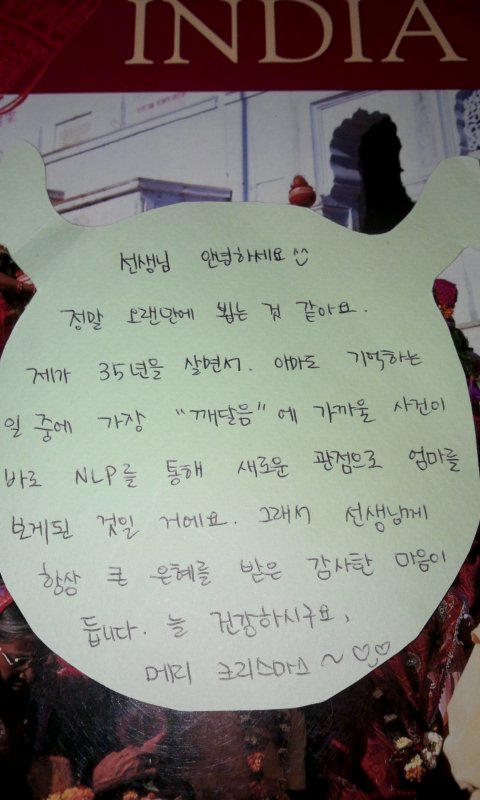 INDIA
선생님 안녕하세요 ^^
정말 오랜만에 뵙는 것 같아요.
제가 35년을 살면서. 아마도 기억하는
일 중에 가장 "깨달음"에 가까울 사건이
바로 NLP를 통해 새로운 관점으로 엄마를
보게된 것일 거에요. 그래서 선생님께
항상 큰 은혜를 받은 감사한 마음이
듭니다. 늘 건강하시구요,
메리 크리스마스 ~ ♡♡